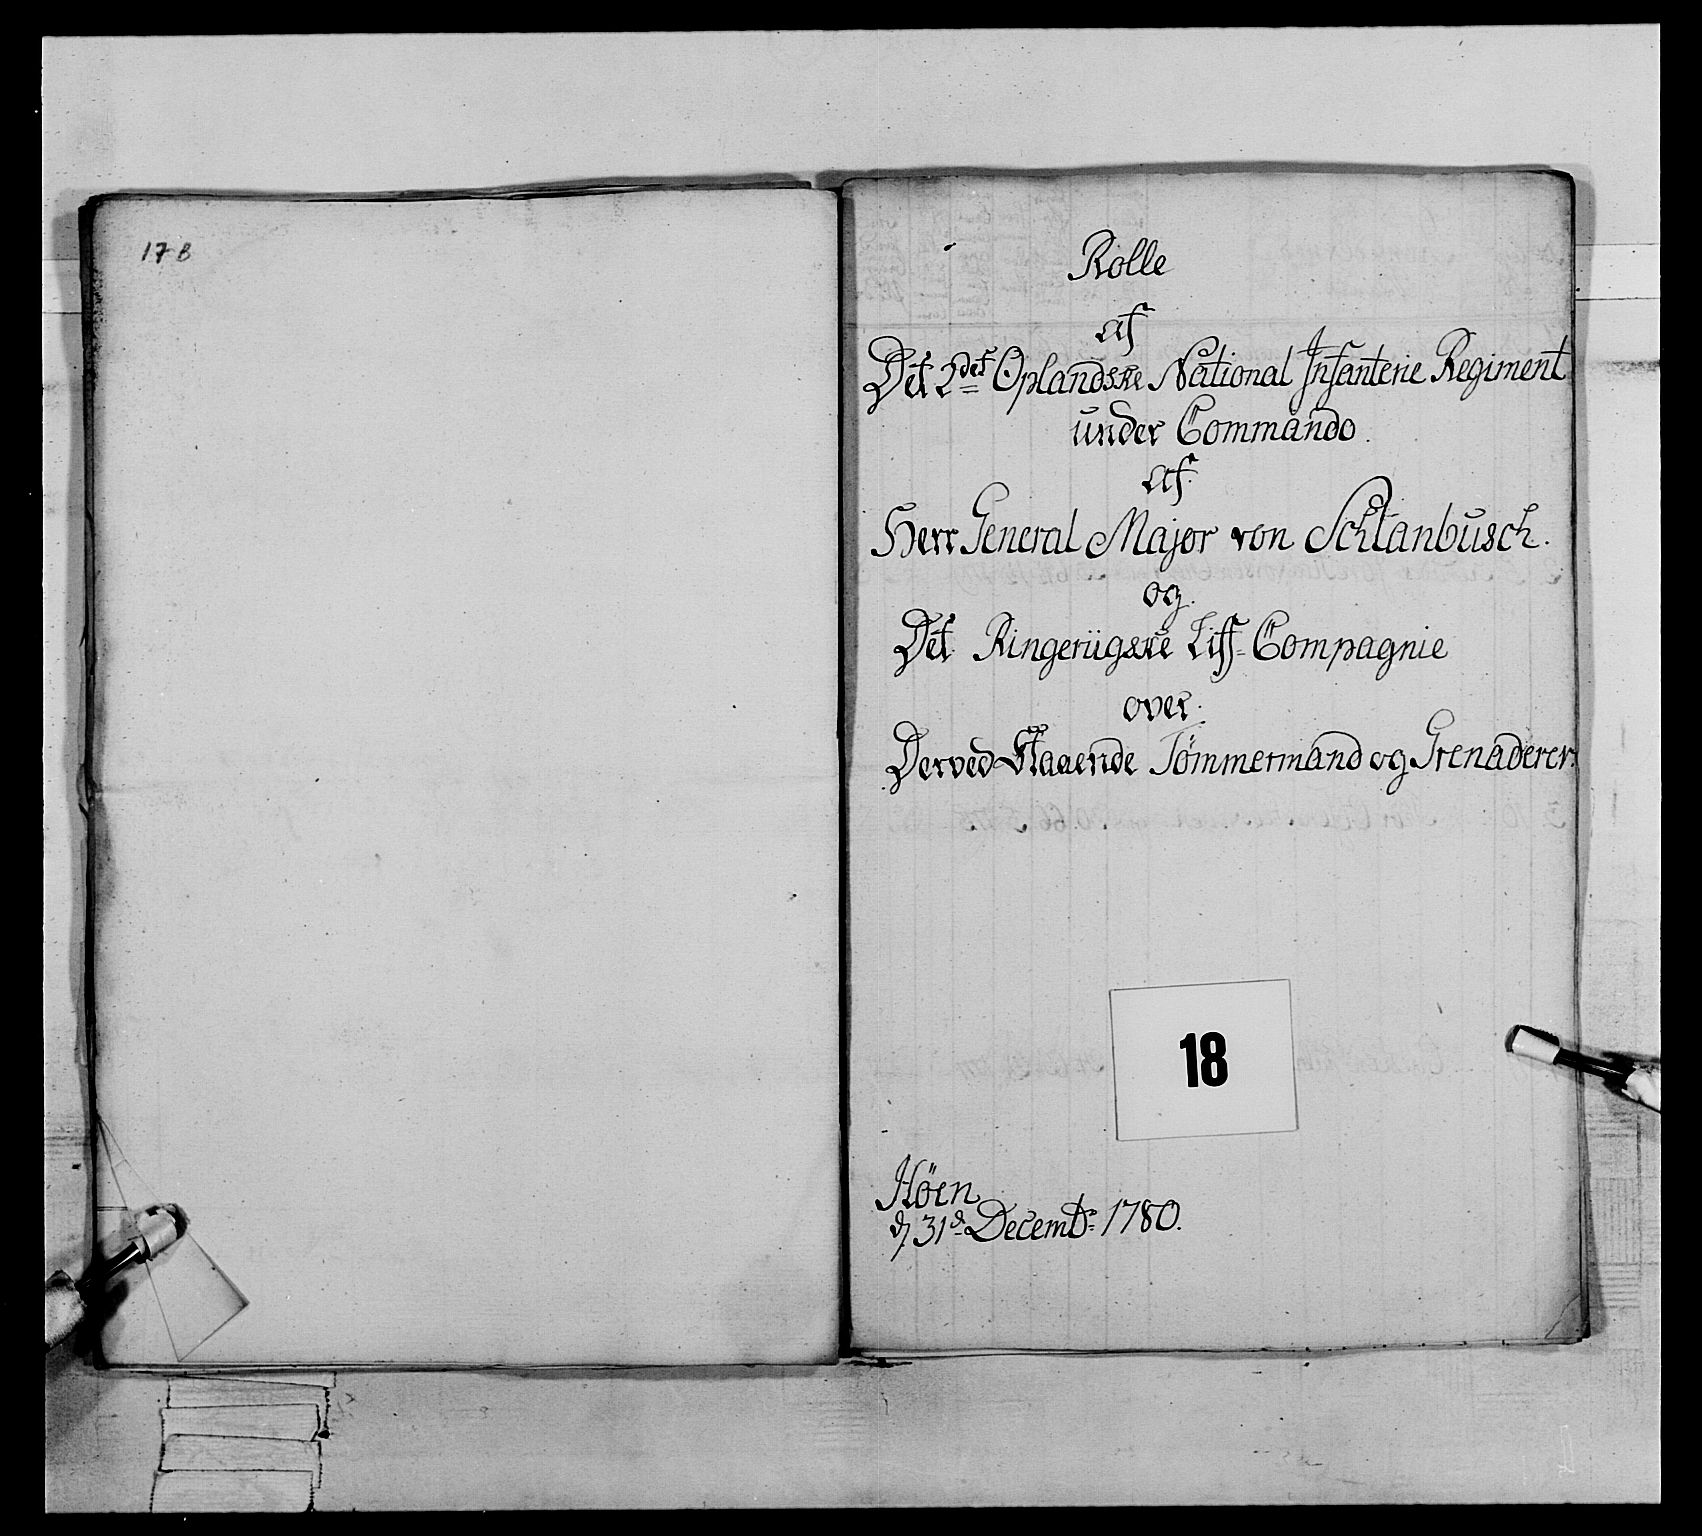 17 B
Rolle
af
Det 2det Oplandske National Infanterie Regiment
under Commando.
af
Herr General Major von Schlanbusch.
og
Det Ringeriigske Liff-Compagnie
over.
Derved Staaende Tömmermand og Grenaderer.
18
Höen
d 31d Decembr 1780.